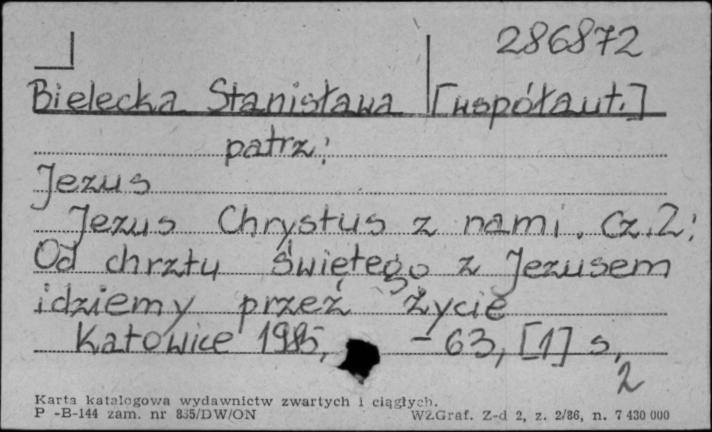 286872
Bielecka Stanisława [współaut.]
patrz:
Jezus
Jezus Chrystus z nami. Cz. 2:
Od chrztu świętego z Jezusem
idziemy przeź życie
Katowice 1985, - 63, [1] s,
2
Karta katalogowa wydawnictw zwartych i ciągłych.
P -B-144 zam. nr 835/DW/ON WZGraf. Z-d 2, z. 2/86, n. 7 430 000